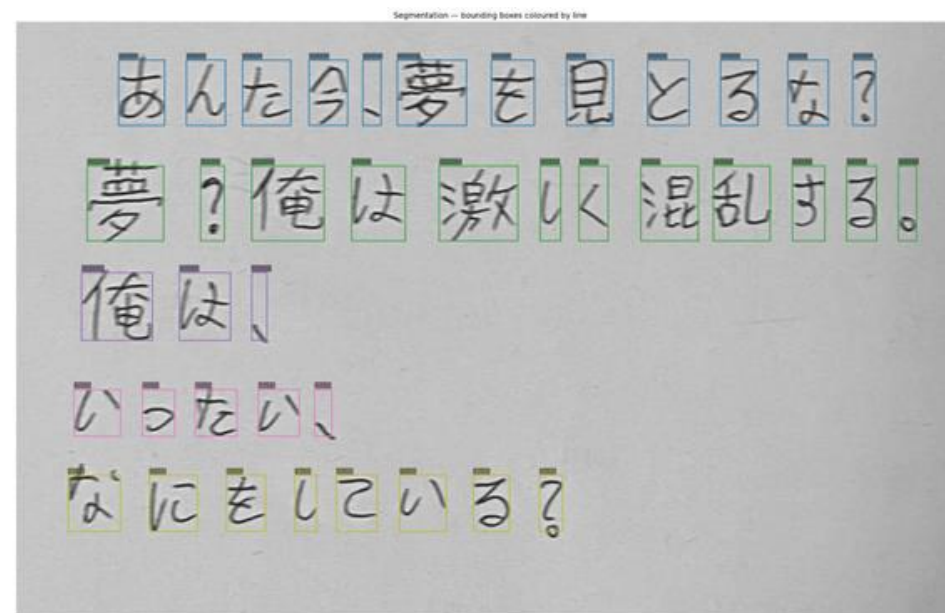 Segmentation — bounding boxes coloured by line
あんた今、夢を見とるな？
夢？俺は激しく混乱する。
俺は、
いったい、
なにをしている？